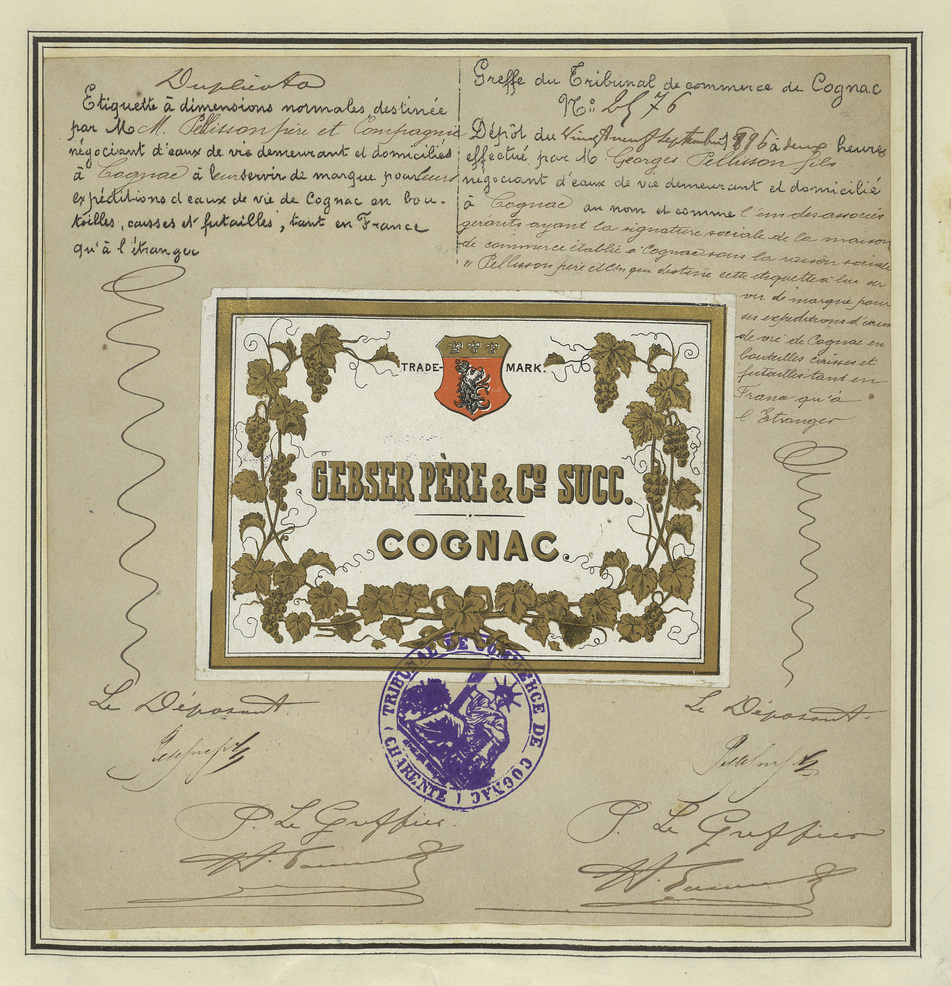 Duplicata
Etiquette à dimensions normales destinée
par MM. Pellisson père et Compagnie
négociant d'eaux de vie demeurant et domiciliés
à Cognac à leur servir de marque pour leurs
expéditions d'eaux de vie de Cognac en bou-
teilles, caisses et futailles, tant en France
qu'à l'étranger
Greffe du Tribunal de commerce de Cognac
N°: 76
Dépôt du vingt neuf septembre 1896 à deux heures
effectué par M. Georges Pellisson fils
négociant d'eaux de vie demeurant et domicilié
à Cognac au nom et comme l'un des associés
gérants ayant la signature sociale de la maison
de commerce établie à Cognac sous la raison sociale
"Pellisson père et Cie qui destine cette étiquette à lui ser
vir de marque pour
ses expéditions d'eaux
de vie de Cognac en
bouteilles caisses et
futailles tant en
France qu'à
l'Etranger
TRADE-MARK.
GEBSER PÈRE & Co SUCC.
COGNAC.
TRIBUNAL DE COMMERCE DE COGNAC
(CHARENTE)
Le Déposant.
Le Déposant.
P. Le Greffier.
P. Le Greffier